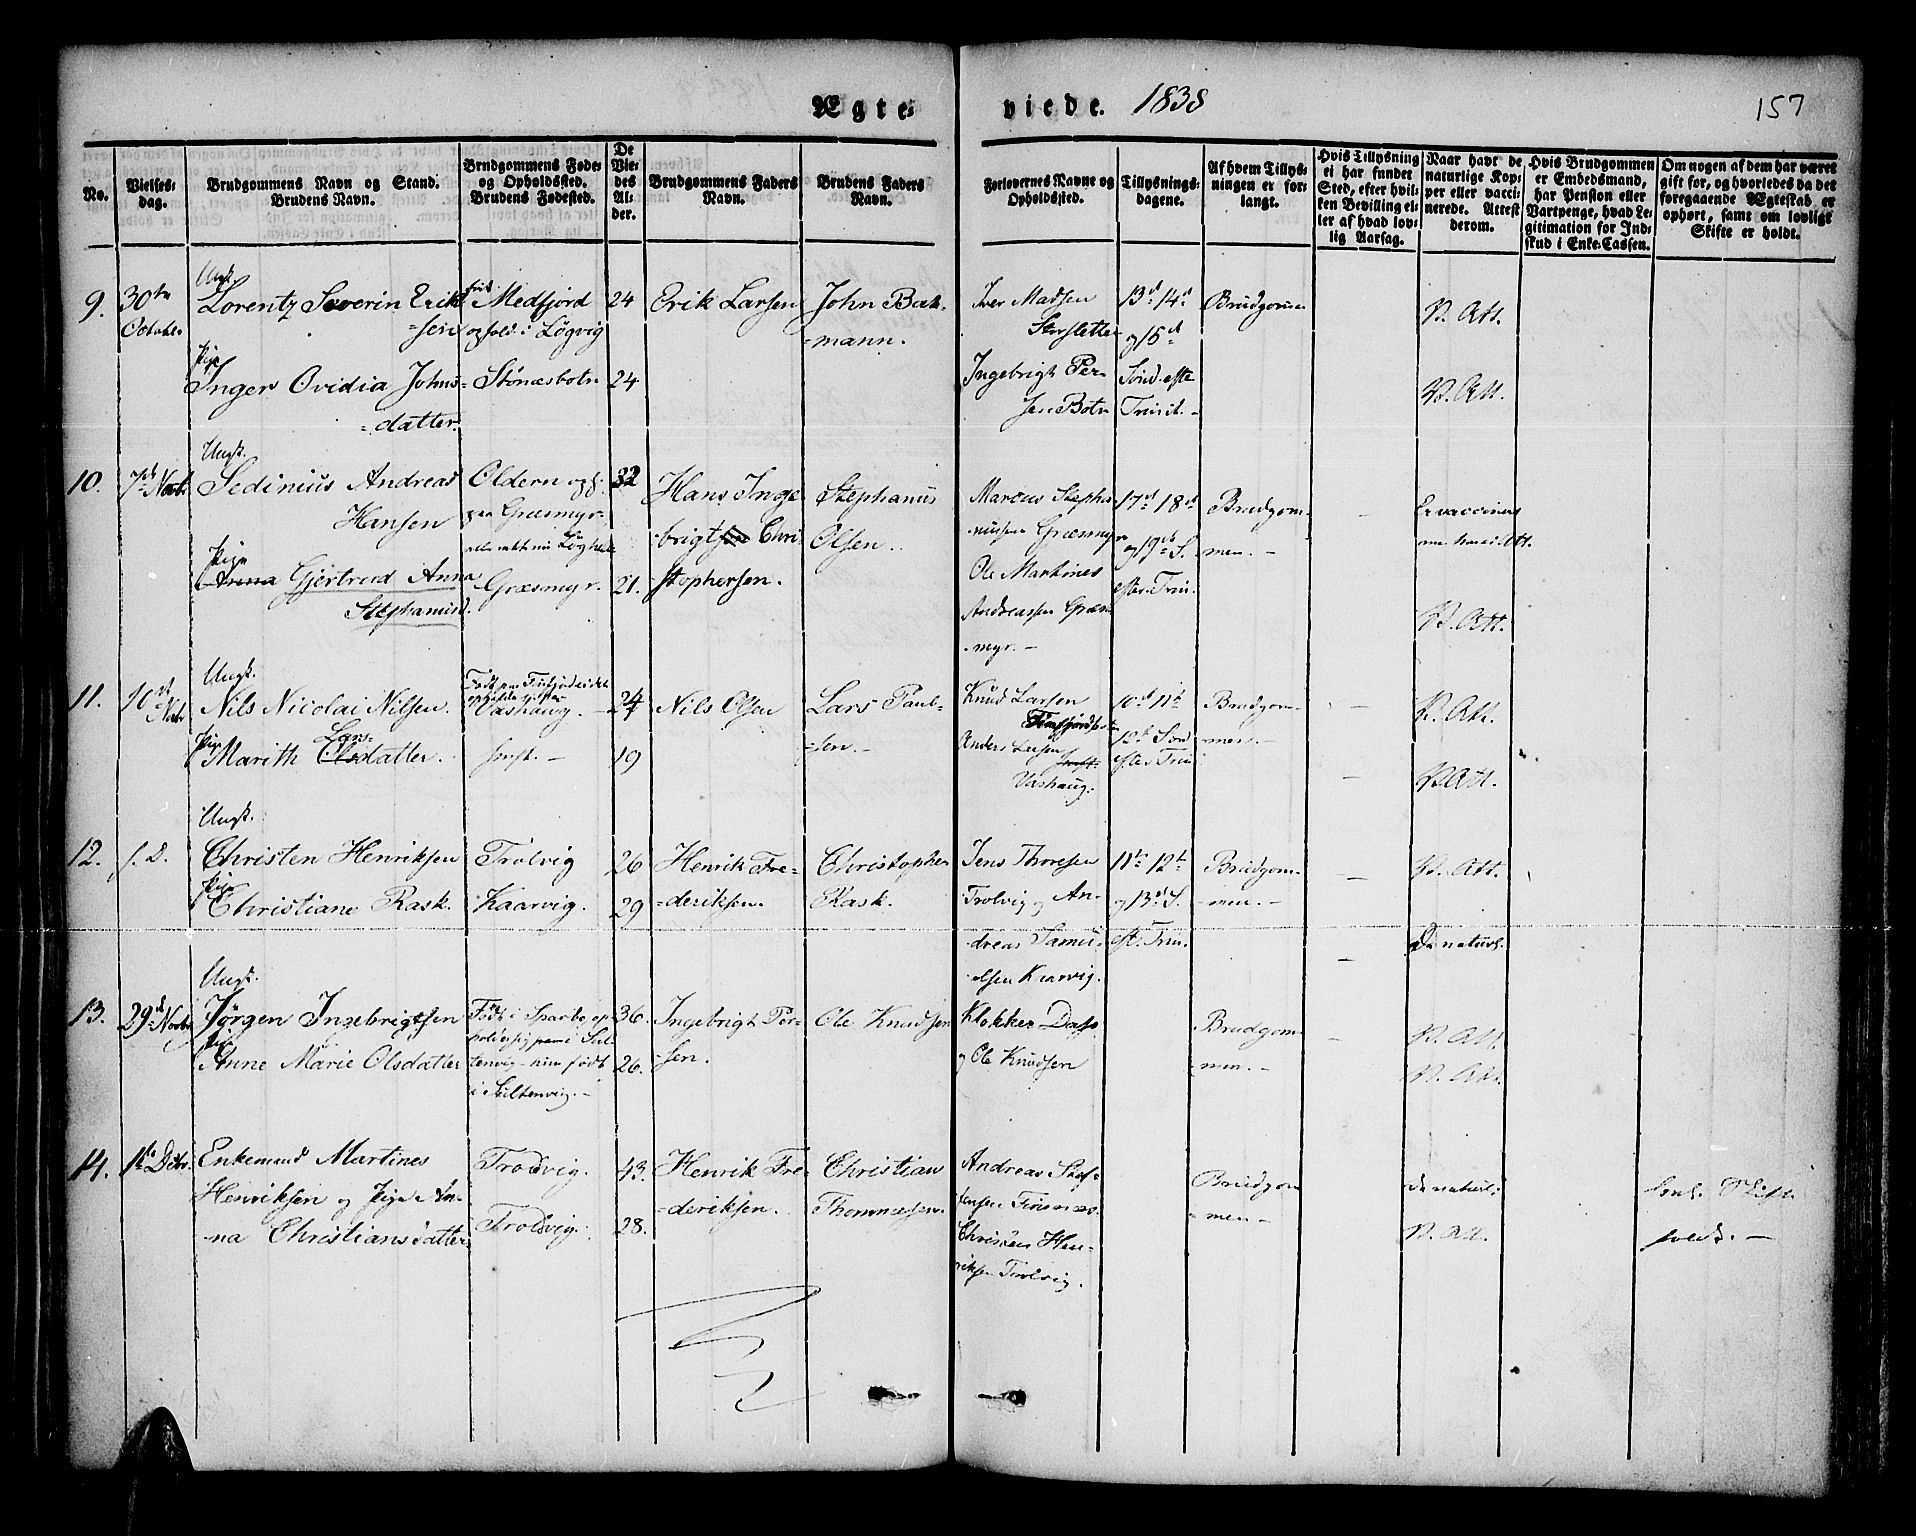 Ægte-
viede. 1838
157
No.
Vielses-
dag.
Brudgommens Navn og Stand.
Brudens Navn.
Brudgommens Føde-
og Opholdssted.
Brudens Fødested.
De
Vie-
des
Al-
der.
Brudgommens Faders
Navn.
Brudens Faders
Navn.
Forlovernes Navne og
Opholdssted.
Tillysnings-
dagene.
Af hvem Tillys-
ningen er for-
langt.
Hvis Tillysning
ei har fundet
Sted, efter hvil-
ken Bevilling el-
ler af hvad lov-
lig Aarsag.
Naar havt de
naturlige Kop-
per eller vacci-
nerede. Attest
derom.
Hvis Brudgommen
er Embedsmand,
har Pension eller
Vartpenge, hvad Le-
gitimation for Ind-
skud i Enke-Cassen.
Om nogen af dem har været
gift før, og hvorledes da det
foregaaende Ægteskab er
ophørt, samt om lovligt
Skifte er holdt.
9.
30te
Octobr.
Ungk.
Lorentz Severin Erik-
=sen
Pige
Inger Ovidia Johns=
=datter.
Medfjord
i Løgvig
Stönæsbotn
24
24
Erik Larsen
John Bak-
=mann.
Iver Madsen
Storsletten
Ingebrigt Per-
sen Botn
13de 14de
og 15de
Sönd. efte
Trinit.-
Brudgom
V. Att.
V. Att.
10.
7de Novbr
Ungk.
Sedinius Andreas
Hansen
Pige
Anna Gjertrud Anna
Stephanusd.
Oldern og
Græsmyr
Græsmyr.
32
21.
Hans Inge
brigtsen Chri
stophersen.
Stephanus
Olsen.
Marcus Stepha
nussen Græsmyr
Ole Martines
Andreassen Græs
myr.-
17de 18de
og 19de S.
efter Trin.
Brudgom-
men.-
Er vaccineret
Att.
V. Att.
11.
10de
Novbr
Ungk.
Nils Nicolai Nilsen.
Pige Lars-
Marith Olsdatter.
Vashaug.
smst.-
24
19
Nils Olsen
Lars Paul-
=sen.-
Knud Larsen
Finfjordbotn
Anders Larsen
smst.
Vashaug.
10de 11te
12te Sönd
efter Trin
Brudgom-
men.-
V. Att.
V. Att.
12.
s. D.
Ungk.
Christen Henriksen
Pige
Christiane Rask.
Trolvig
Kaarvig.
26
29
Henrik Fre-
=deriksen.
Christopher
Rask.
Jens Thoresen
Trolvig og An-
dreas Samu-
elsen Kaarvig.
11te 12te
og 13de S.
eft. Trin.
Brudgom-
men.-
V. Att.
De naturl.
13.
29de Novbr
Ungk.
Jörgen Ingebrigtsen
Pige
Anne Marie Olsdatter
Födt i Sparbo op-
holder sig nu i Sul-
tenvig - hun födt
i Sultenvig.-
36.
26.
Ingebrigt Per-
sen.
Ole Knudsen
Klokker Dass
og Ole Knudsen
Brudgom-
men.-
V. Att.
V. Att.
14.
1te Decbr.
Enkemand Martines
Henriksen og Pige An-
na Christiansdatter
Trolvig.
Trolvig.
43.
28.
Henrik Fre
=deriksen.
Christian
Thommesen.
Andreas Stef-
fensen Finsnæs.
Christen Hen-
riksen Trolvig.
Brudgom
men-
De naturl.
V. Att.
Skift
holdt.-